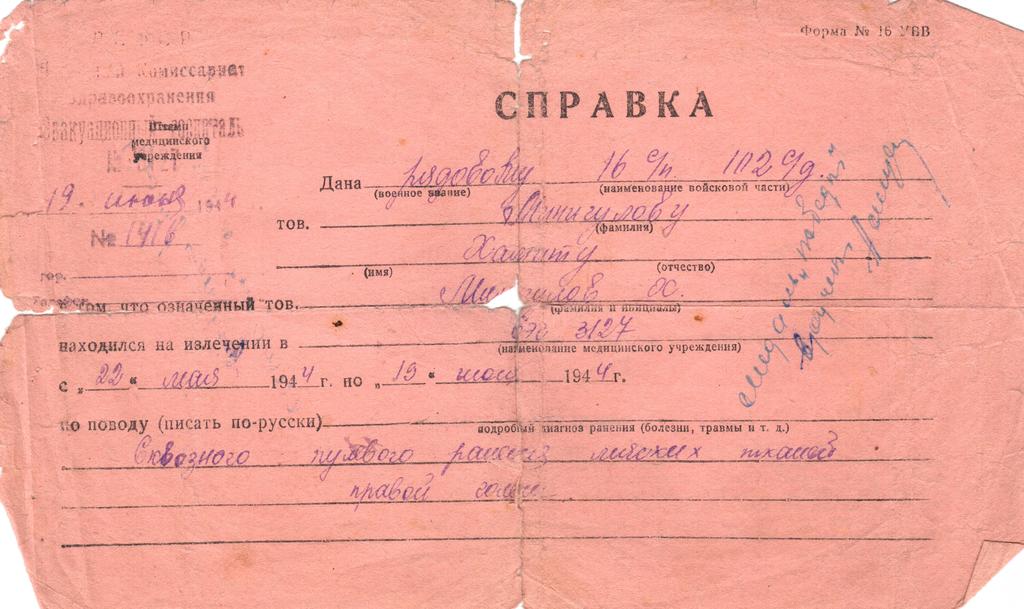 Форма № 16 УВВ
Комиссариат
здравоохранения
Эвакуационный госпиталь
Штамп
медицинского
учреждения
19. июня 1944
№ 1416
гор.
СПРАВКА
Дана рядовому 16 с/п. 112 с/д.
(военное звание) (наименование войсковой части)
тов. Мингулову
(фамилия)
Хамиту
(имя) (отчество)
в том, что означенный тов. Мингулов
(фамилия и инициалы)
находился на излечении в 3127
(наименование медицинского учреждения)
с „22“ мая 1944 г. по „19“ июня 1944 г.
по поводу (писать по-русски)
подробный диагноз ранения (болезни, травмы и т. д.)
Сквозного пулевого ранения мягких тканей
правой
медаль „победы“
вручена